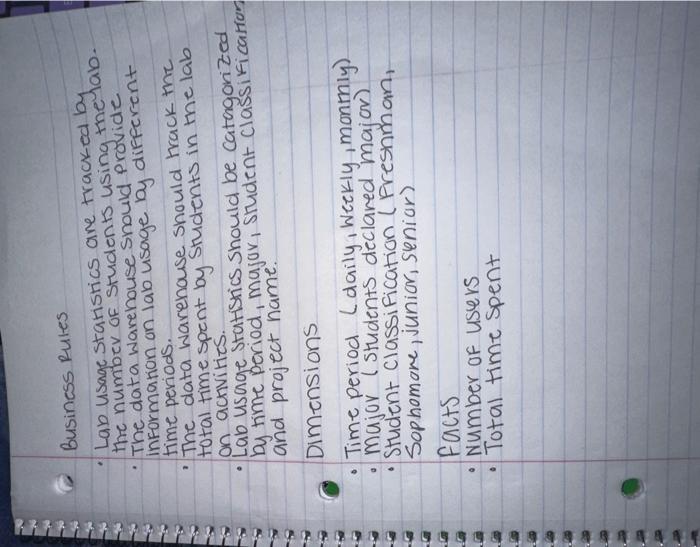 Business Rules
• Lab usage statistics are tracked by
the number of students using the lab.
• The data warehouse should provide
information on lab usage by different
time periods.
• The data warehouse should track the
total time spent by students in the lab
on activities.
• Lab usage statistics should be catagorized
by time period, major, student classification
and project name.
Dimensions
• Time period (daily, weekly, monthly)
• Major (students declared major)
• Student classification (Freshman,
Sophomore, junior, senior)
Facts
• Number of users
• Total time spent